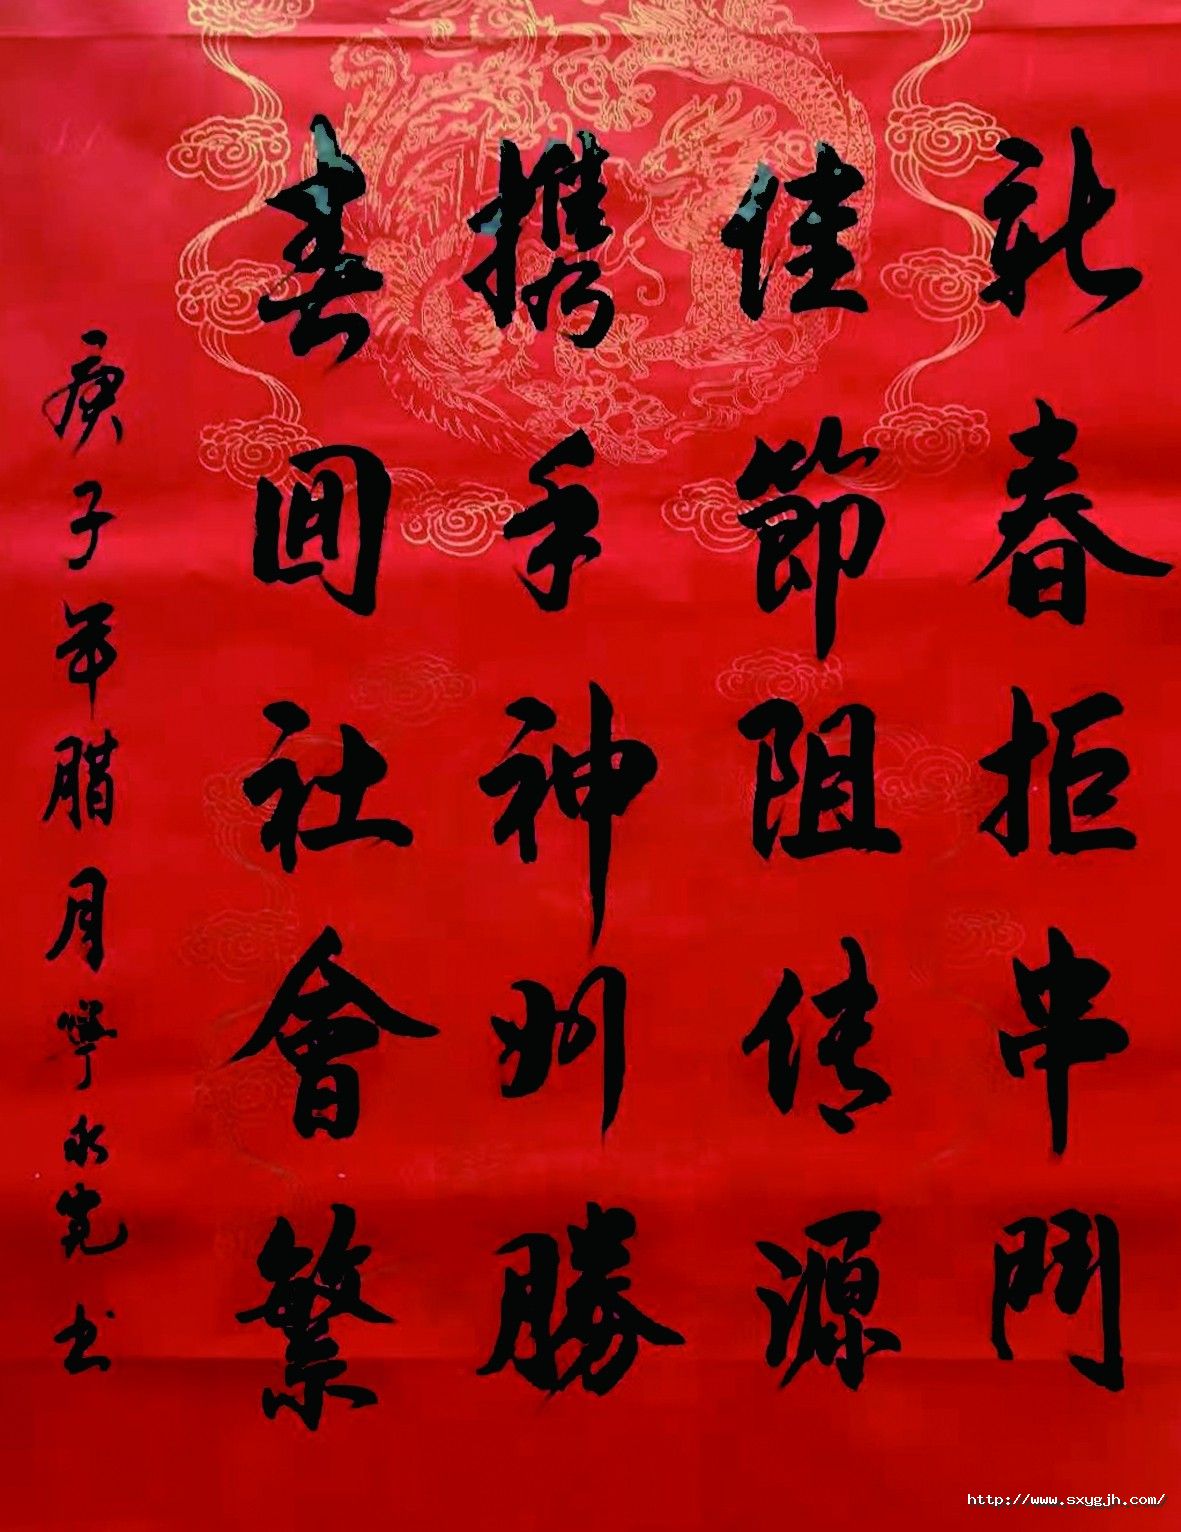 新春拒串門
佳節阻传源
携手神州勝
春囬社會繁
庚子年腊月寧永宽书
http://www.sxygjh.com/